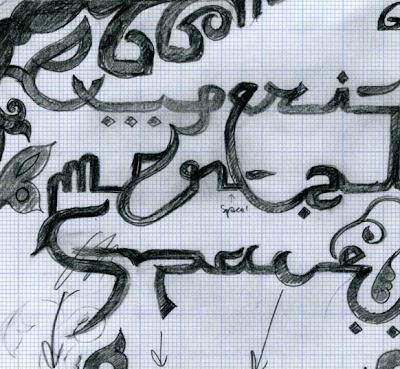 Experi-
mental
Space!
Space